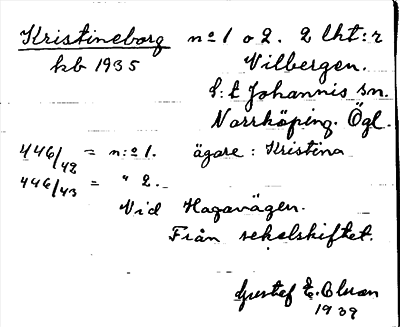 Kristineborg nº 1 o 2. 2 lht:r
kb 1935 Vilbergen.
S:t Johannis sn.
Norrköping. Ögl.
446/42 = n:o 1. ägare: Kristina
446/43 = " 2.
Vid Hagavägen.
Från sekelskiftet.
Gustaf E.
1939